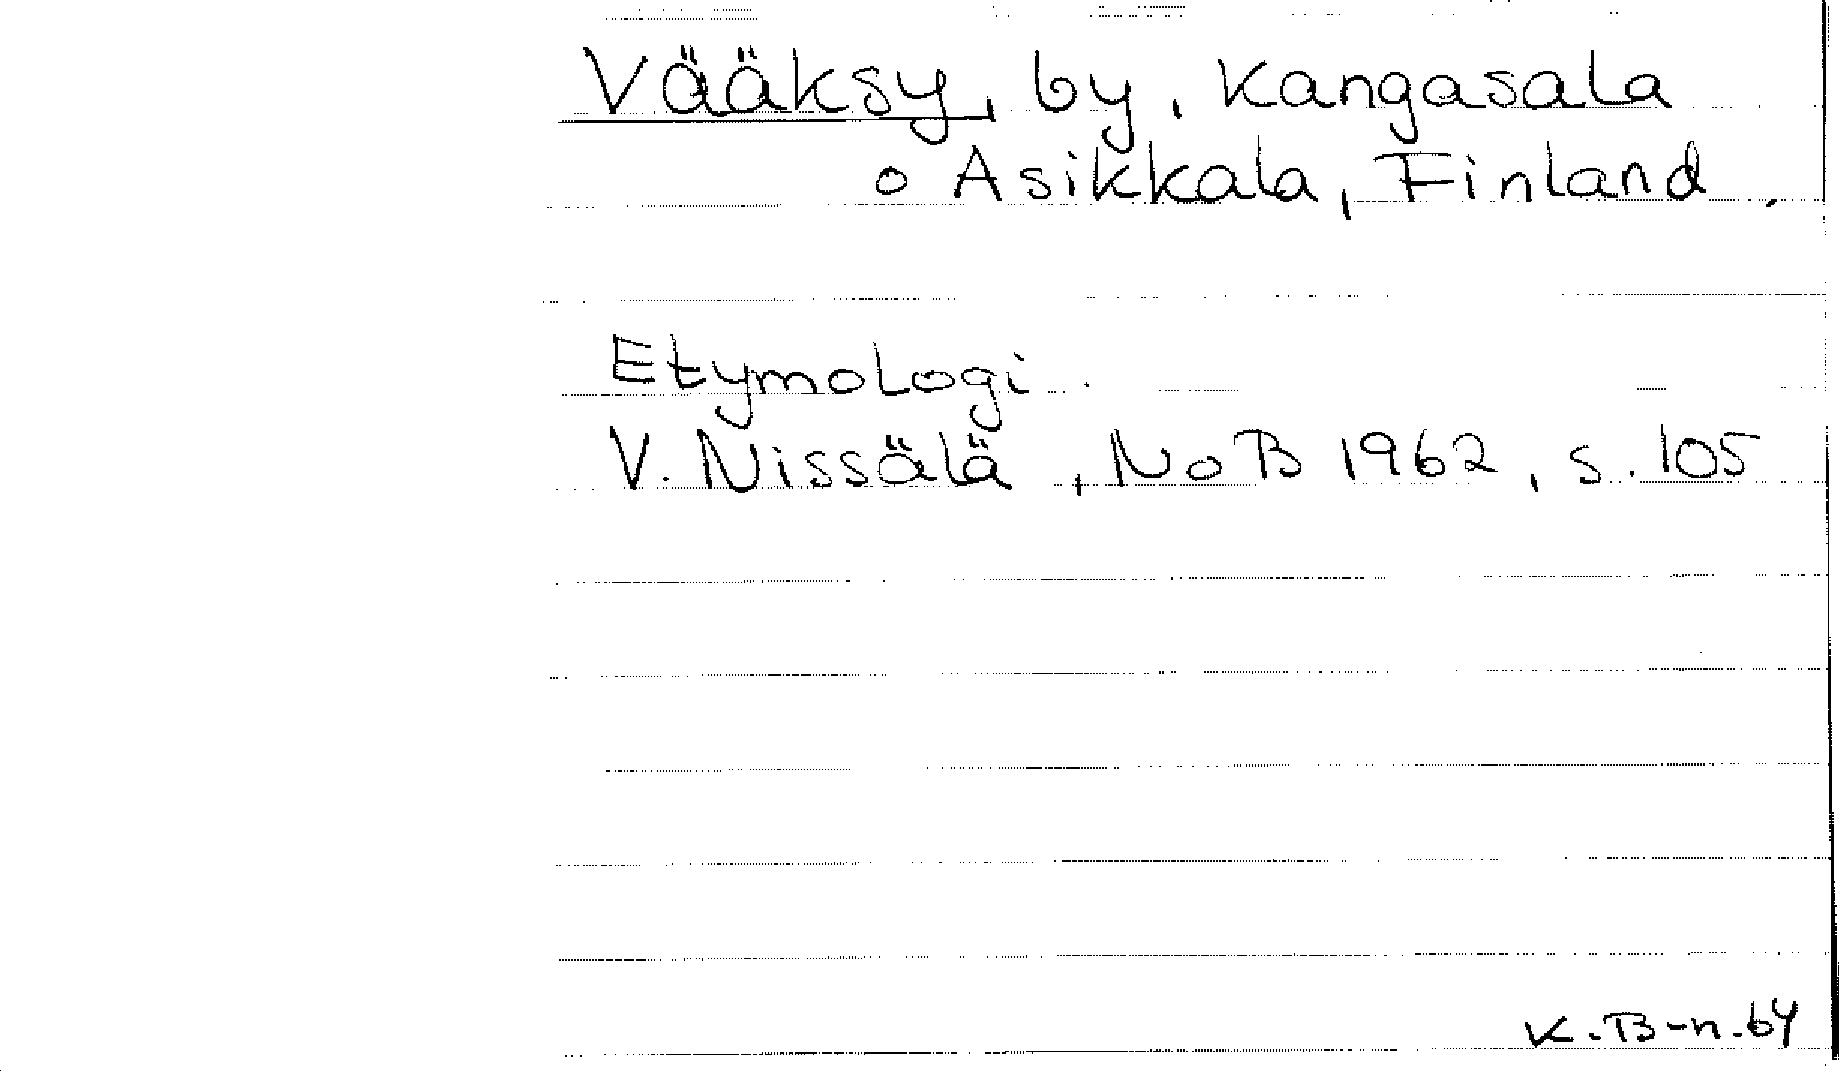 Vääksy, by, Kangasala
o Asikkala, Finland.
Etymologi.
V. Nissälä, NoB 1962, s. 105
K.B-n.64